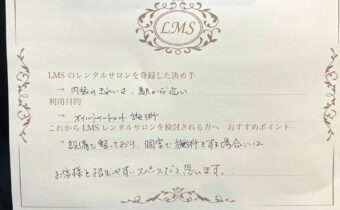 LMS
LMSのレンタルサロンを登録した決め手
→ 内装のきれいさ、駅から近い
利用目的
→ オイルトリートメント施術
これからLMSレンタルサロンを検討される方へ おすすめポイント
→ 設備も整っており、個室で施術をする場合には
お客様を招きやすいスペースだと思います。